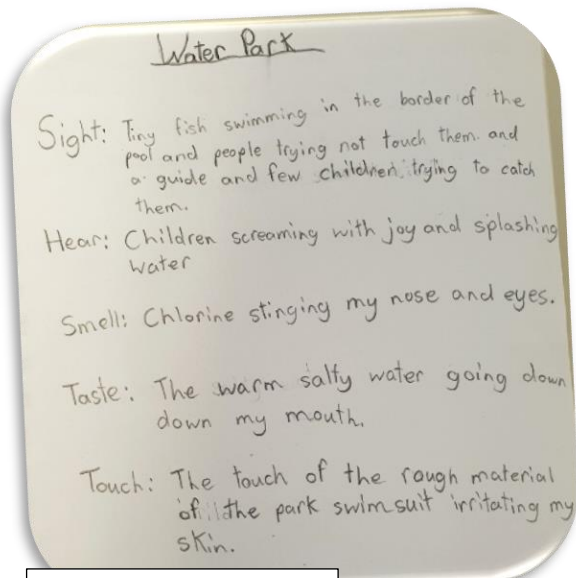 Water Park
Sight: Tiny fish swimming in the border of the
pool and people trying not touch them. and
a guide and few children trying to catch
them.
Hear: Children screaming with joy and splashing
water
Smell: Chlorine stinging my nose and eyes.
Taste: The warm salty water going down
down my mouth.
Touch: The touch of the rough material
of the park swimsuit irritating my
skin.